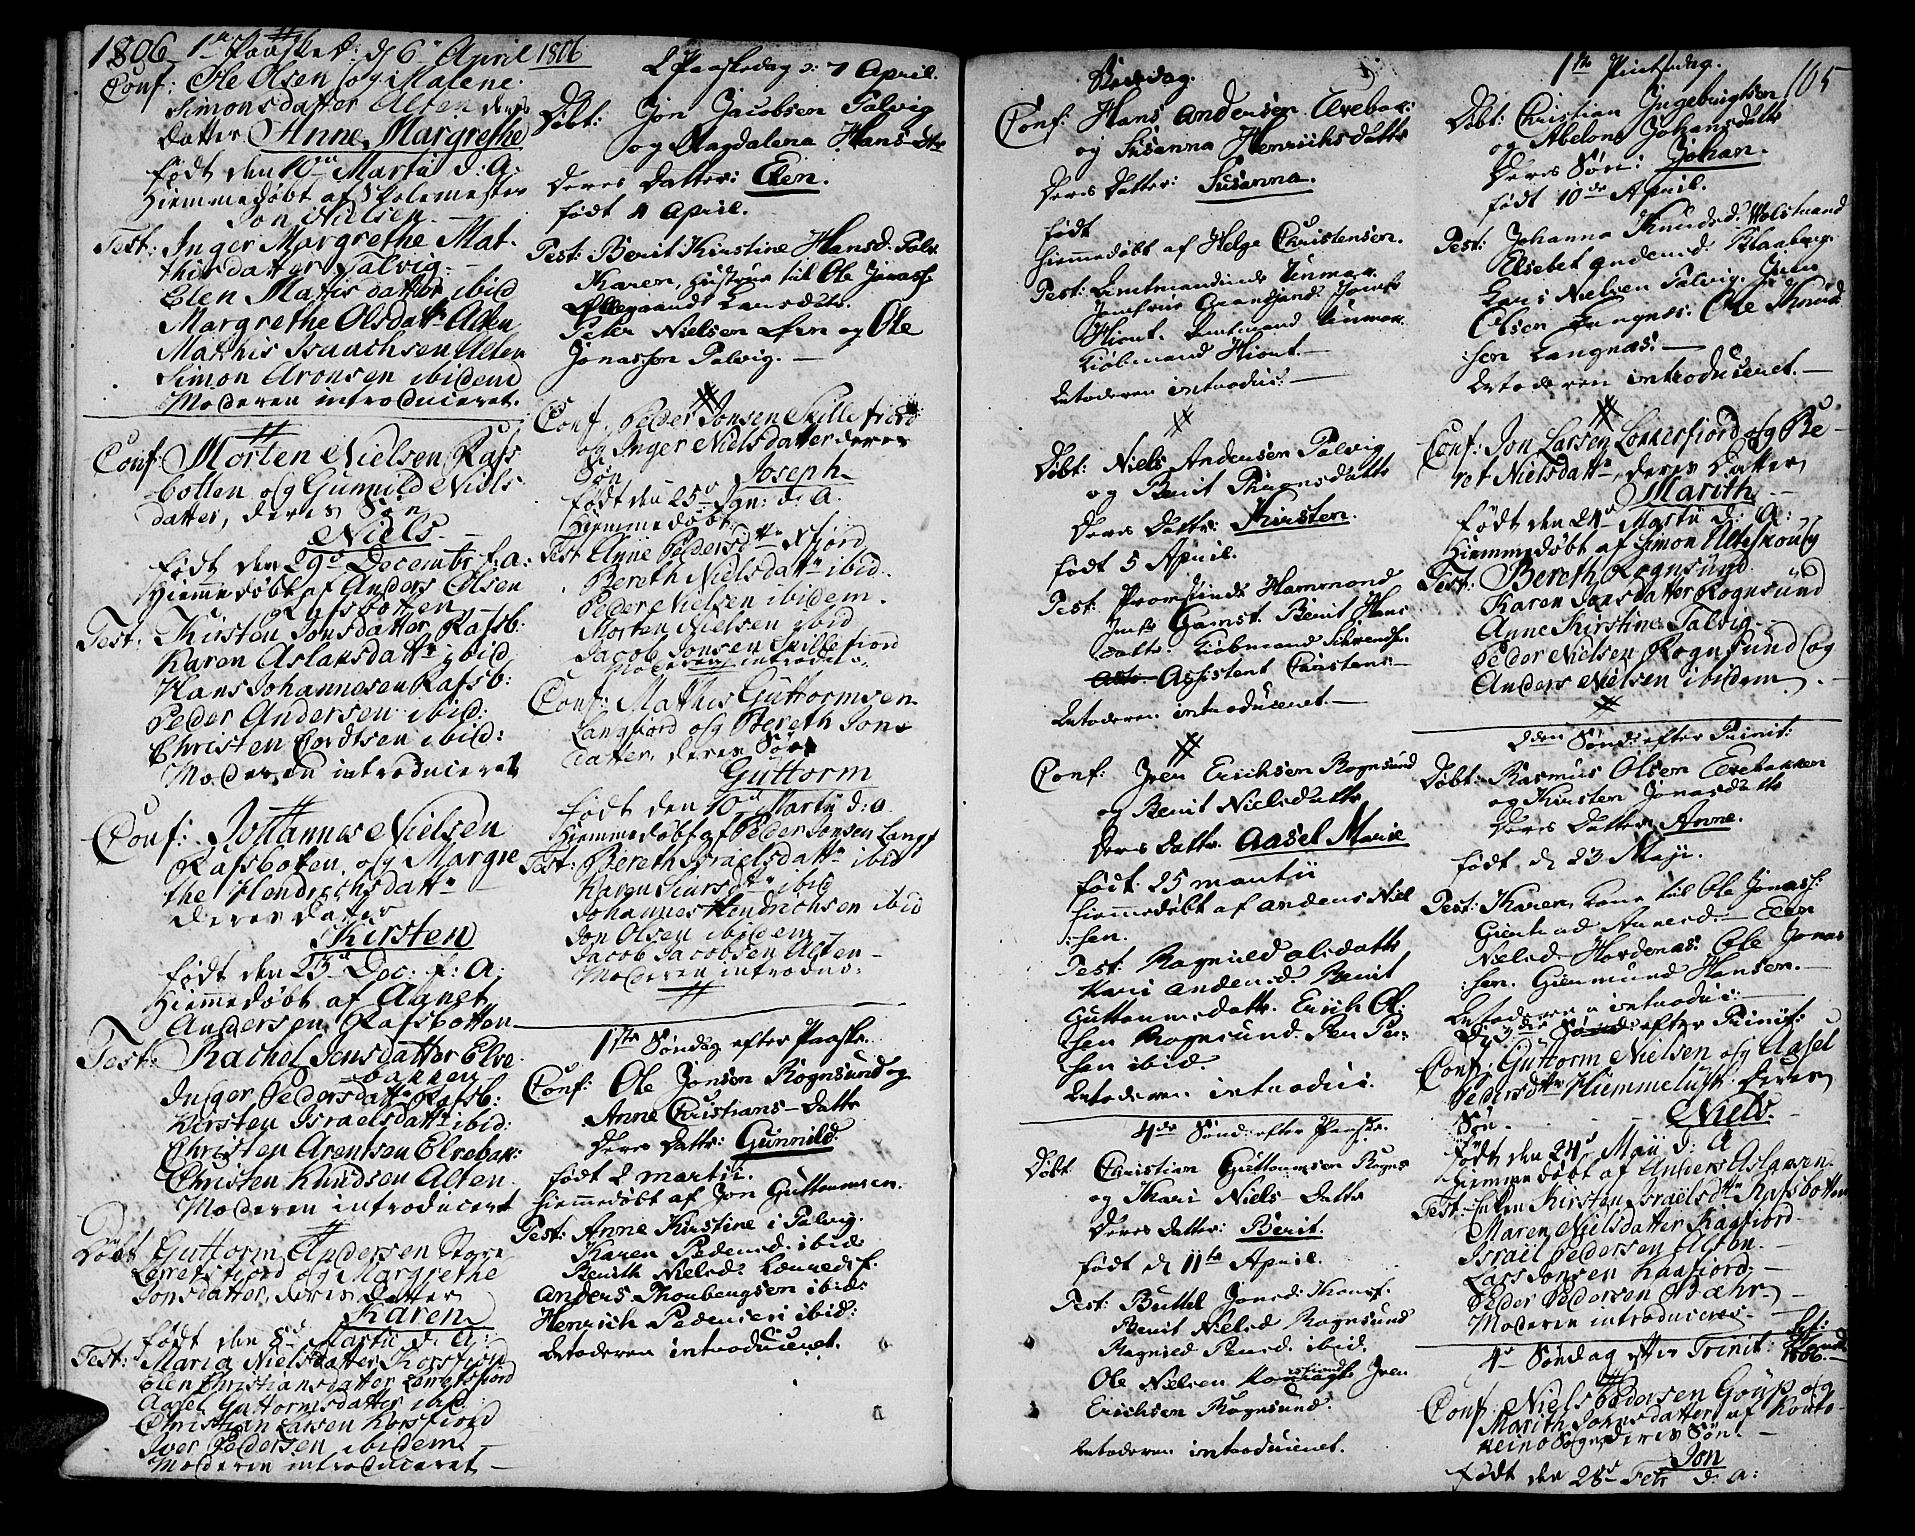 1806 1te Paasked: d 6te April 1806
Conf: Ole Olsen og Malene
Simonsdatter Alten deres
datter Anne Margrethe
født den 10de Martii d: A:
Hiemmedøbt af Skolemester
Jon Nielsen.
Test: Inger Margrethe Mat-
thisdatter Talvig.
Elen Mathisdatter ibid
Margrethe Olsdattr Alten
Mathis Isaachsen Alten
Simon Aronsen ibidem
Moderen introduceret.
Conf: Morten Nielsen Rafs
botten og Gunnild Niels
datter, deres Søn
Niels.
født den 29de Decembr f: a:
Hiemmedøbt af Anders Olsen
Rafsbotten
Test: Kirsten Jonsdatter Rafsb:
Karen Aslaksdattr ibid
Hans Johannesen Rafsb:
Peder Andersen ibid:
Christen Cordtsen ibid:
Moderen introduceret
Conf: Johannes Nielsen
Rafsbotten, og Margre
the Hendrichsdattr
deres datter
Kirsten
født den 23de Dec: f: A:
Hiemmedøbt af Agnet
Andersen Rafsbotten
Test: Rachel Jensdatter Elve
bakken
Inger Pedersdattr Rafsb:
Kirsten Israelsdattr ibid:
Christen Arentsen Elvebak:
Christen Knudsen Alten
Moderen introduceret
Døbt Guttorm Andersen Store
Lerretsfiord og Margrethe
Jonsdatter, deres datter
Karen
født den 8de Martii d: A:
Test: Maria Nielsdatter Korsfiord
Elen Christiansdatter Lerretsfiord
Aasel Guttormsdatter ibid
Christian Larsen Korsfiord
Iver Pedersen ibidem
Moderen introduceret
2 Paaskedag d: 7 April.
Døbt: Jon Jacobsen Talvig
og Magdalena Hans-dtr
Deres Datter: Elen.
født 4 April.
Test: Berit Kirstine Hansd: Talv:
Karen, Hustrue til Ole Jonass:
Peter Nielsen Øren og Ole
Jonassen Talvig.
Conf: Peder Jonsen Skillefiord
og Inger Nielsdatter deres
Søn Joseph
født den 25de Jan: d: A.
Hiemmedøbt
Test Anne Pedersdtr fiord
Bereth Nielsdattr ibid.
Peder Nielsen ibidem.
Morten Nielsen ibid
Jacob Jonsen Skillefiord
Moderen introdus:
Conf: Mathis Guttormsen
Langfiord og Bereth Jons
datter, deres Søn
Guttorm
født den 10de Martii d: a
Hiemmedøbt af Peder Jonsen Langf
Test: Bereth Israelsdattr ibid
Karen Larsdtr ibid
Johannes Hendrichsen ibid
Jon Olsen ibidem
Jacob Jacobsen Alten
Moderen introdus:
1ste Søndag efter Paaske.
Conf: Ole Jonsen Rognsund og
Anne Christians-Dattr
Deres Dattr: Gunnild.
født 2 martii.
hiemmedøbt af Jon Guttormsen.
Test: Anne Kirstine i Talvig.
Karen Pedersd. ibid:
Berith Nielsd:
Anders Thorbergsen ibid:
Henrich Pedersen ibid:
Betoderen introduceret.
Bededag.
Conf: Hans Andersen Elvebak:
og Susanna Henrichsdattr
Deres Datter: Susanna.
født
hiemmedøbt af Helge Christensen.
Test:
Kiøbmand Hiort.
Betoderen introduc:
Døbt: Niels Andersen Talvig
og Berit
Deres Dattr: Kirsten.
født 5 April.
Test: Provstinde Hammond
Jmfr Gamst. Berit Hans
dattr. Kiøbmand
Assistent Carstens
Betoderen introduceret.
Conf: Iver Erichsen Rognsund
og Berit Nielsdattr
Deres Dattr. Aasel Marie
født 25 martii
hiemmedøbt af Anders Niel
:sen.
Test: Ragnild Olsdattr
Kari Andersd. Berit
Guttormsdattr. Erich Ol:
:sen Rognsund. Per Per-
:sen ibid.
Betoderen introduci.
4de Sønd: efter Paaske.
Døbt: Christian Guttormsen Rogns:
og Kari Niels-Dattr
Deres Dattr: Berit.
født d 11te April.
Test: Buttel Jonsd:
Berit Nielsd Rognsund
Ragnild Persd. ibid.
Ole Nielsen Iver
Erichsen Rognsund.
Betoderen introduceret.
1te Pintsedag. 165
Døbt: Christian Ingebrigtsen
og Abelone Johansdattr
Deres Søn: Johan.
født 10de April.
Test: Johanna Knudsd: Wolstrand
Elsebet Andersd. Klaaberg.
Lars Nielsen Talvig.
Olsen Langnes: Ole Knud
:sen Langnæs.
Betoderen introduceret.
Conf: Jon Larsen Lerresfiord og Be-
ret Nielsdattr, deres datter
Marith
født den 24de Martii d: A:
Hiemmedøbt af Simon Alteskoug
Test: Bereth Rognsund.
Karen Jonsdatter Rognsund
Anne Kirstine Talvig
Peder Nielsen Rognsund og
Anders Nielsen ibidem.
2den Sønd: efter Trinit:
Døbt: Rasmus Olsen Elvebakken
og Kirsten Jonasdattr
Deres Datter Anne.
født d 23 Maji.
Test: Karen, kone til Ole Jonass:
Giertrud Arnesd. Elen
Nielsd. Hordenæs. Ole Jonas
:sen. Giermund Hansen.
Betoderen introduc:
3die Sønd: efter Trinit:
Conf: Guttorm Nielsen og Aasel
Pedersdtr Hiemmeluft deres
Søn Niels.
født den 24de Maii d: A
Hiemmedøbt af Anders Aslaksen
Test: Enken Kirsten Israelsdtr Rafsbotten
Maren Nielsdatter Kaafiord
Israel Pedersen Alten.
Lars Jonsen Kaafiord.
Peder Pedersen Bæhr
Moderen introduceres
4de Søndag efter Trinit:
1806.
Conf: Niels Pedersen Goup og
Marith Jonsdatter af Kouto-
keino Sogn deres Søn
Jon
født den 28de Febr d: a: